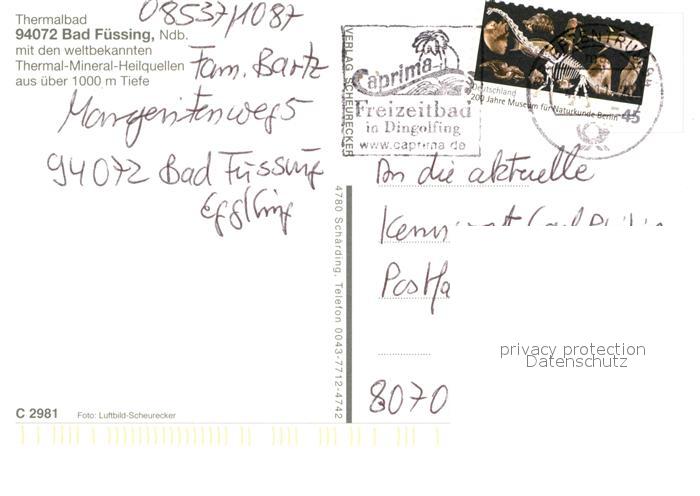 Thermalbad
94072 Bad Füssing, Ndb.
mit den weltbekannten
Thermal-Mineral-Heilquellen
aus über 1000 m Tiefe
08537/1087
Fam. Bartz
Margeritenweg 5
94072 Bad Füssing
Egglfing
VERLAG SCHEURECKER
4780 Schärding, Telefon 0043-7712-4742
Caprima
Freizeitbad
in Dingolfing
www.caprima.de
Deutschland
200 Jahre Museum für Naturkunde Berlin
45
An die aktuelle
Kennwort
Postfa
8070
privacy protection
Datenschutz
C 2981
Foto: Luftbild-Scheurecker